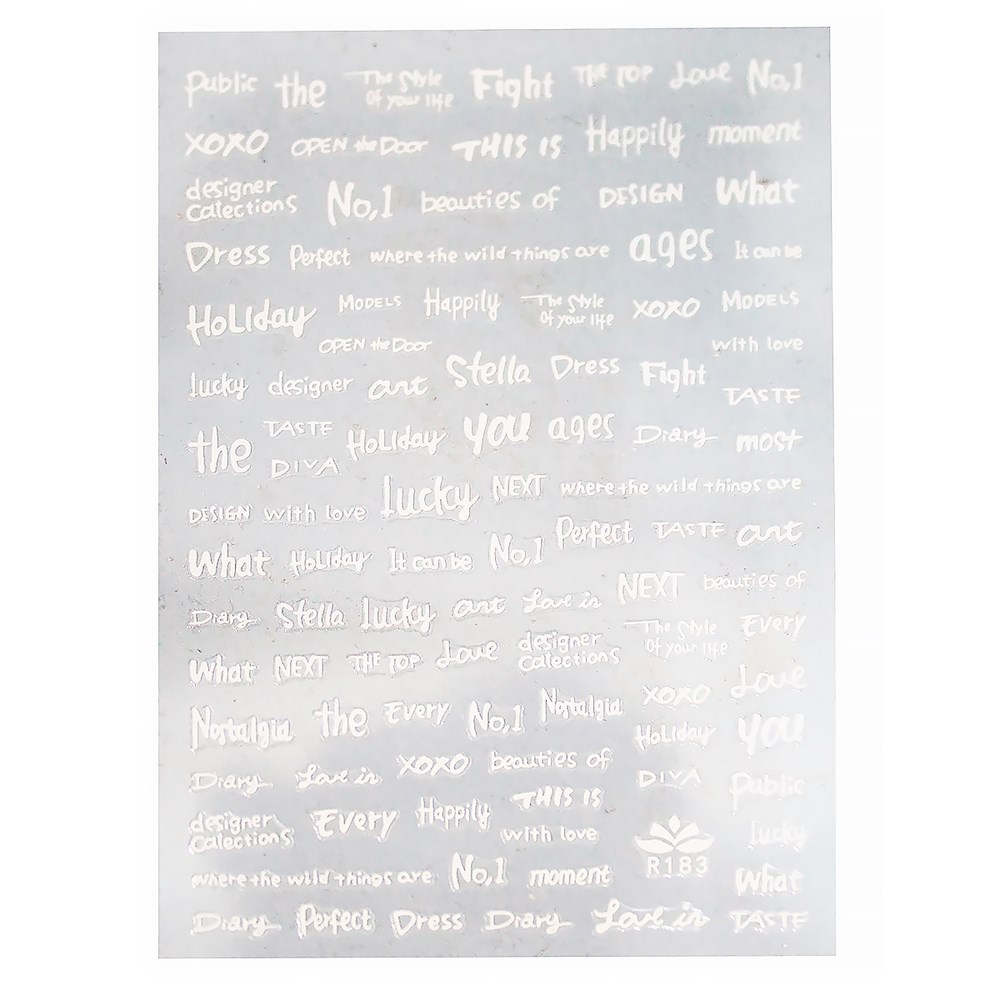 Public the The Style Of your life Fight THE TOP Love No,1
XOXO OPEN the Door THIS IS Happily moment
designer Calections No,1 beauties of DESIGN What
Dress Perfect where the wild things are ages It can be
HoLIday MODELS Happily The Style Of your life XOXO MODELS
OPEN the Door with love
lucky designer art Stella Dress Fight TASTE
the TASTE DIVA HoLIday you ages Diary most
DESIGN with love lucky NEXT where the wild things are
What HoLIday It can be No,1 Perfect TASTE art
Diary Stella lucky art Love in NEXT beauties of
What NEXT THE TOP Love designer Calections The Style Of your life Every
Nostalgia the Every No,1 Nostalgia XOXO Love
HoLIday you
Diary Love in XOXO beauties of DIVA Public
designer Calections Every Happily THIS IS with love lucky
where the wild things are No,1 moment R183 What
Diary Perfect Dress Diary Love in TASTE